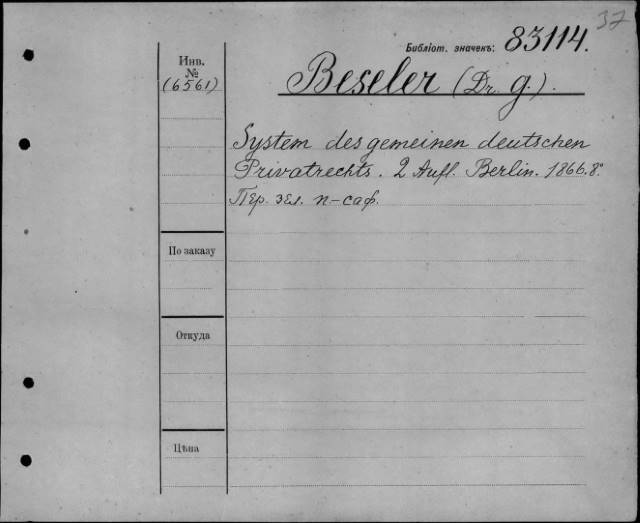 37
Библіот. значекъ: 83114.
Инв.
№
(6561)
Beseler (Dr. G.).
System des gemeinen deutschen
Privatrechts. 2 Aufl. Berlin. 1866. 8°
Пер. зел. п-саф.
По заказу
Откуда
Цѣна